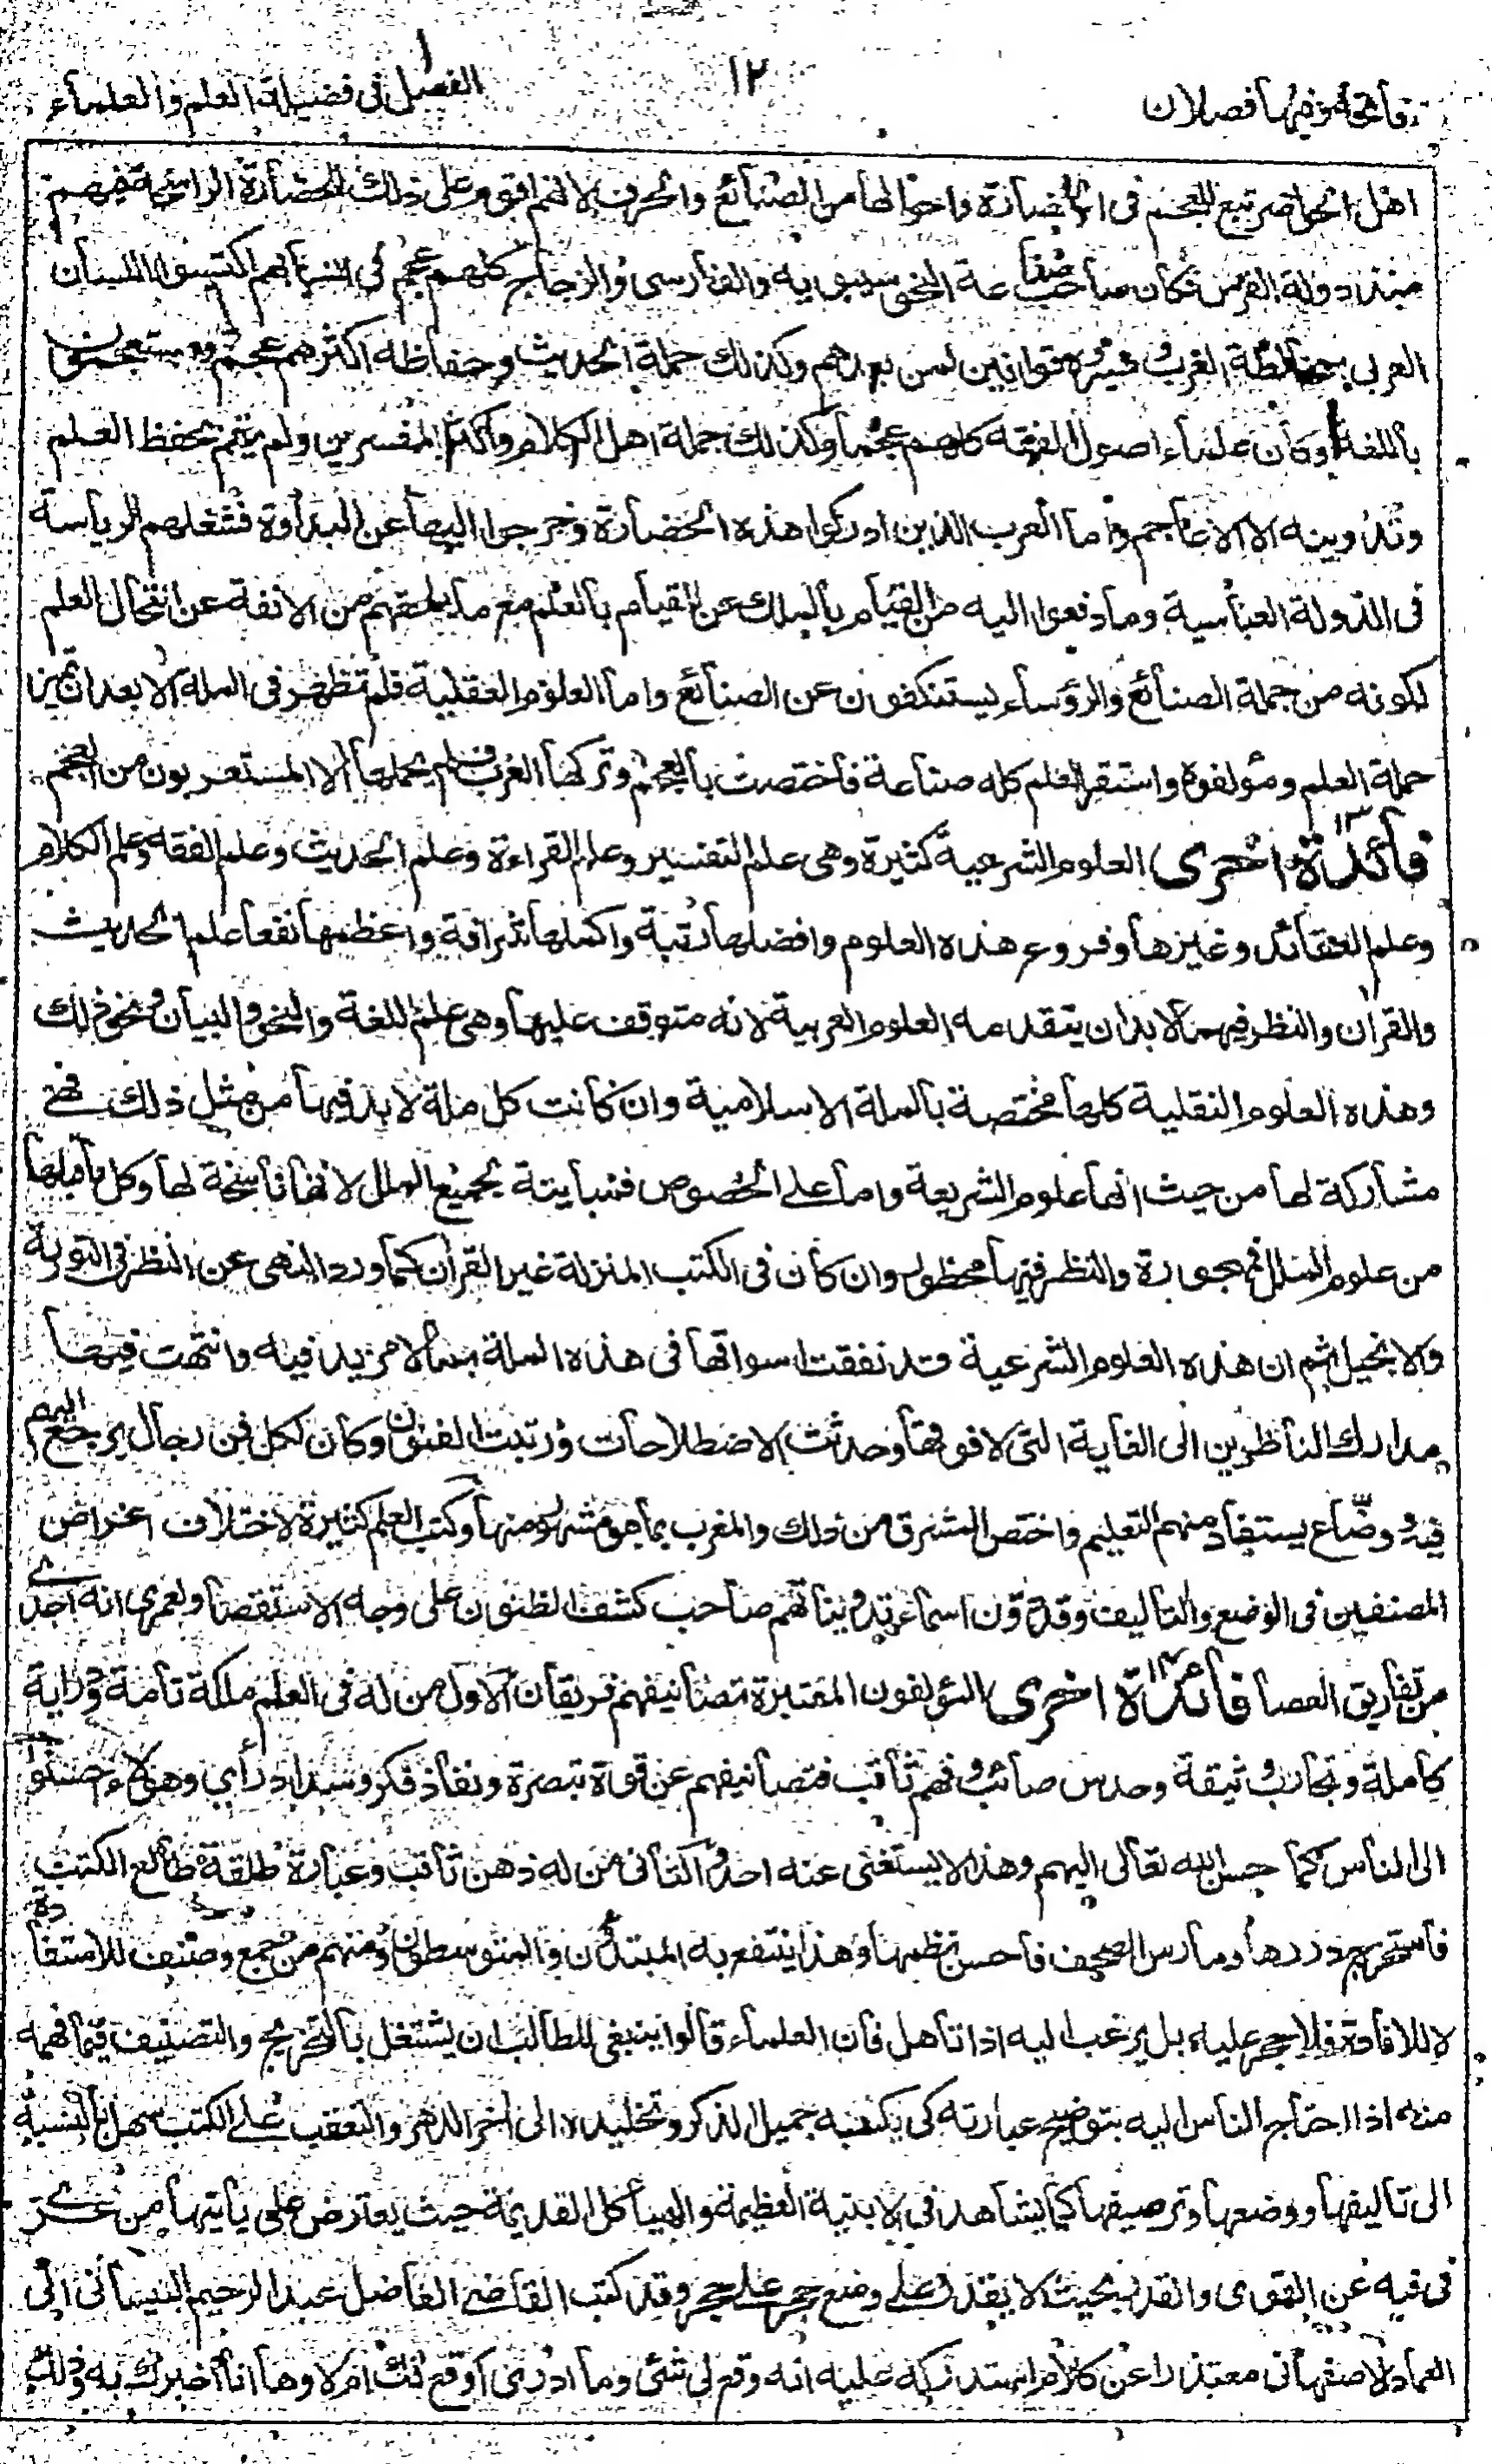 فاتحة وفيها فصلان
١٢
الفصل ١ فى فضيلة العلم والعلماء
اهل الحواضر تبع للعجم فى الحضارة واحوالها من الصنائع والحرف لانهم اقوم على ذلك للحضارة الراسخة فيهم
منذ دولة الفرس فكان صاحب صناعة النحو سيبويه والفارسى والزجاج كلهم عجم فى انسابهم اكتسبوا اللسان
العربى بمخالطة العرب وصيروه قوانين لمن بعدهم وكذلك حملة الحديث وحفاظه اكثرهم عجم او مستعجمون
باللغة وكان علماء اصول الفقه كلهم عجما وكذلك جملة اهل الكلام واكثر المفسرين ولم يقم بحفظ العلم
وتدوينه الا الاعاجم واما العرب الذين ادركوا هذه الحضارة وخرجوا اليها عن البداوة فشغلهم الرياسة
فى الدولة العباسية وما دفعوا اليه من القيام بالملك عن القيام بالعلم مع ما يلحقهم من الانفة عن انتحال العلم
لكونه من جملة الصنائع والرؤساء يستنكفون عن الصنائع واما العلوم العقلية فلم تظهر فى الملة الا بعد ان تميز
حملة العلم ومؤلفوه واستقر العلم كله صناعة فاختصت بالعجم وتركها العرب فلم يحملها الا المستعربون من العجم
فائدة اخرى ١٣ العلوم الشرعية كثيرة وهى علم التفسير وعلم القراءة وعلم الحديث وعلم الفقه وعلم الكلام
وعلم العقائد وغيرها وفروع هذه العلوم وافضلها رتبة واكملها شرافة واعظمها نفعا علم الحديث
والقرآن والنظر فيهما لابد ان يتقدمه العلوم العربية لانه متوقف عليها وهى علم اللغة والنحو والبيان ونحو ذلك
وهذه العلوم النقلية كلها مختصة بالملة الاسلامية وان كانت كل ملة لابد فيها من مثل ذلك فهى
مشاركة لها من حيث انها علوم الشريعة واما على الخصوص فمباينة لجميع الملل لانها ناسخة لها وكل ما قبلها
من علوم الملل فمهجورة والنظر فيها محظور وان كان فى الكتب المنزلة غير القرآن كما ورد النهى عن النظر فى التورية
والانجيل ثم ان هذه العلوم الشرعية قد نفقت اسواقها فى هذه الملة بما لا مزيد فيه وانتهت فيها
مدارك الناظرين الى الغاية التى لا فوقها وحدثت الاصطلاحات ورتبت الفنون وكان لكل فن رجال يرجع اليهم
فيه ووضّاع يستفاد منهم التعليم واختص المشرق من ذلك والمغرب بما هو مشهور منها وكتب العلم كثيرة لاختلاف اغراض
المصنفين فى الوضع والتاليف وقد دون اسماء تدويناتهم صاحب كشف الظنون على وجه الاستقصا ولعمرى انه اجدى
من تفاريق العصا فائدة اخرى ١٤ المؤلفون المعتبرة تصانيفهم فريقان الاول من له فى العلم ملكة تامة ودراية
كاملة وتجارب وثيقة وحدس صائب وفهم ثاقب فتصانيفهم عن قوة تبصرة ونفاذ فكر وسداد رأي وهؤلاء احسنوا
الى الناس كما احسن الله تعالى اليهم وهذا لا يستغنى عنه احد والثانى من له ذهن ثاقب وعبارة طلقة طالع الكتب
فاستخرج دررها ومارس الصحف فاحسن نظمها وهذا ينتفع به المبتدؤن والمتوسطون ومنهم من جمع وصنف للاستفادة
لا للافادة فلا حجر عليه بل يرغب اليه اذا تاهل فان العلماء قالوا ينبغى للطالب ان يشتغل بالتخريج والتصنيف فيما فهمه
منه اذا احتاج الناس اليه بتوضيح عبارته كى يكسبه جميل الذكر وتخليده الى آخر الدهر والتعقب على الكتب سهل بالنسبة
الى تاليفها ووضعها وترصيفها كما يشاهد فى الابنية العظيمة والهياكل القديمة حيث يعترض على بانيها من عرى
فى فنه عن القوى والقدر بحيث لا يقدر على وضع حجر على حجر وقد كتب القاضى الفاضل عبد الرحيم البيسانى الى
العماد الاصفهانى معتذرا عن كلام استدركه عليه انه وقع لى شئ وما ادرى أوقع لك ام لا وها انا اخبرك به وذلك